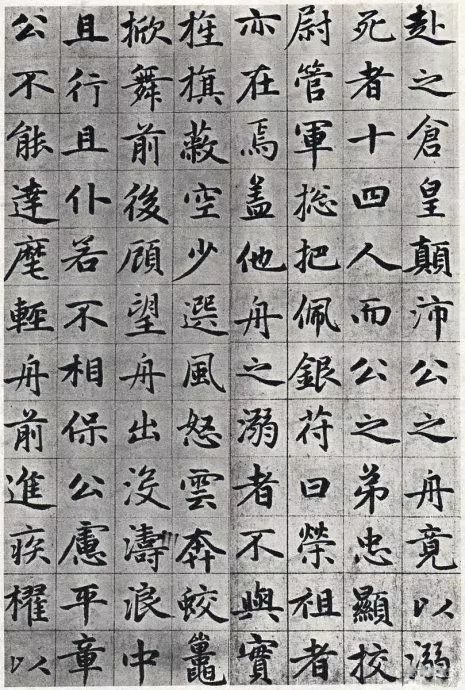 赴之倉皇顛沛公之舟竟以溺
死者十四人而公之弟忠顯挍
尉管軍摠把佩銀符曰榮祖者
亦在焉盖他舟之溺者不與實
旌旗蔽空少選風怒雲奔蛟鼉
掀舞前後顧望舟出沒濤浪中
且行且仆若不相保公慮平章
公不能達麾輕舟前進疾櫂以